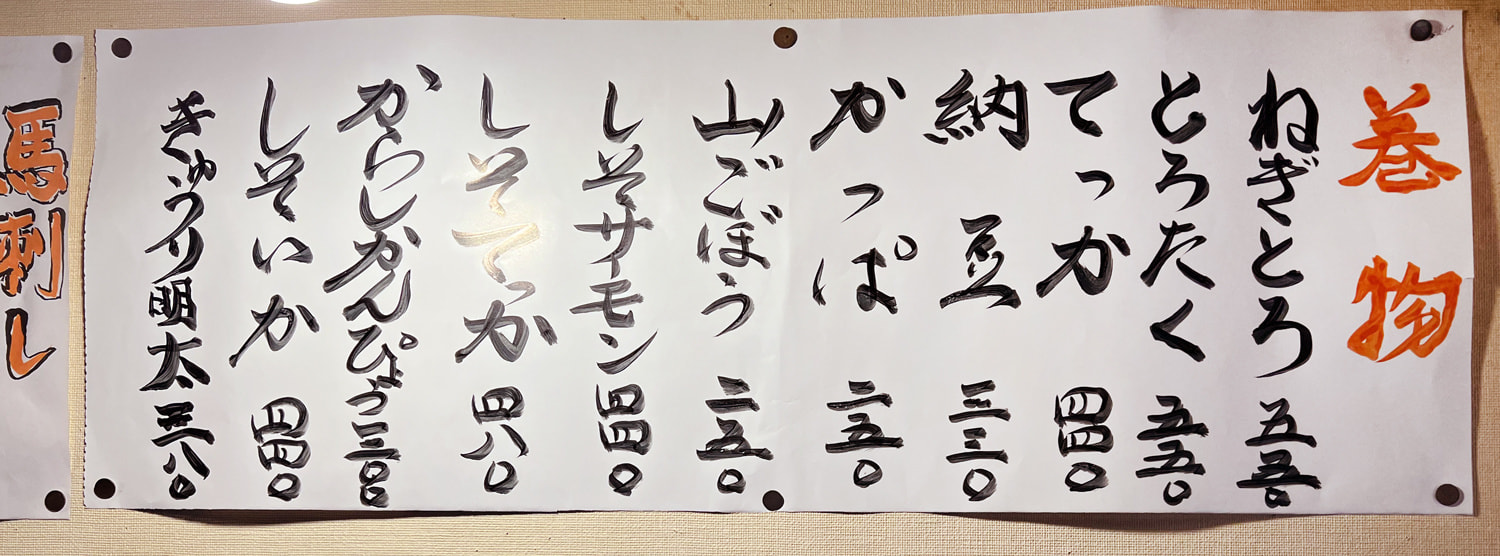 巻物
ねぎとろ 五五〇
とろたく 五五〇
てっか 四四〇
納豆 三三〇
かっぱ 二五〇
山ごぼう 二五〇
しそサーモン 四四〇
しそてっか 四八〇
からしかんぴょう 三三〇
しそいか 四四〇
きゅうり明太 三八〇
馬刺し